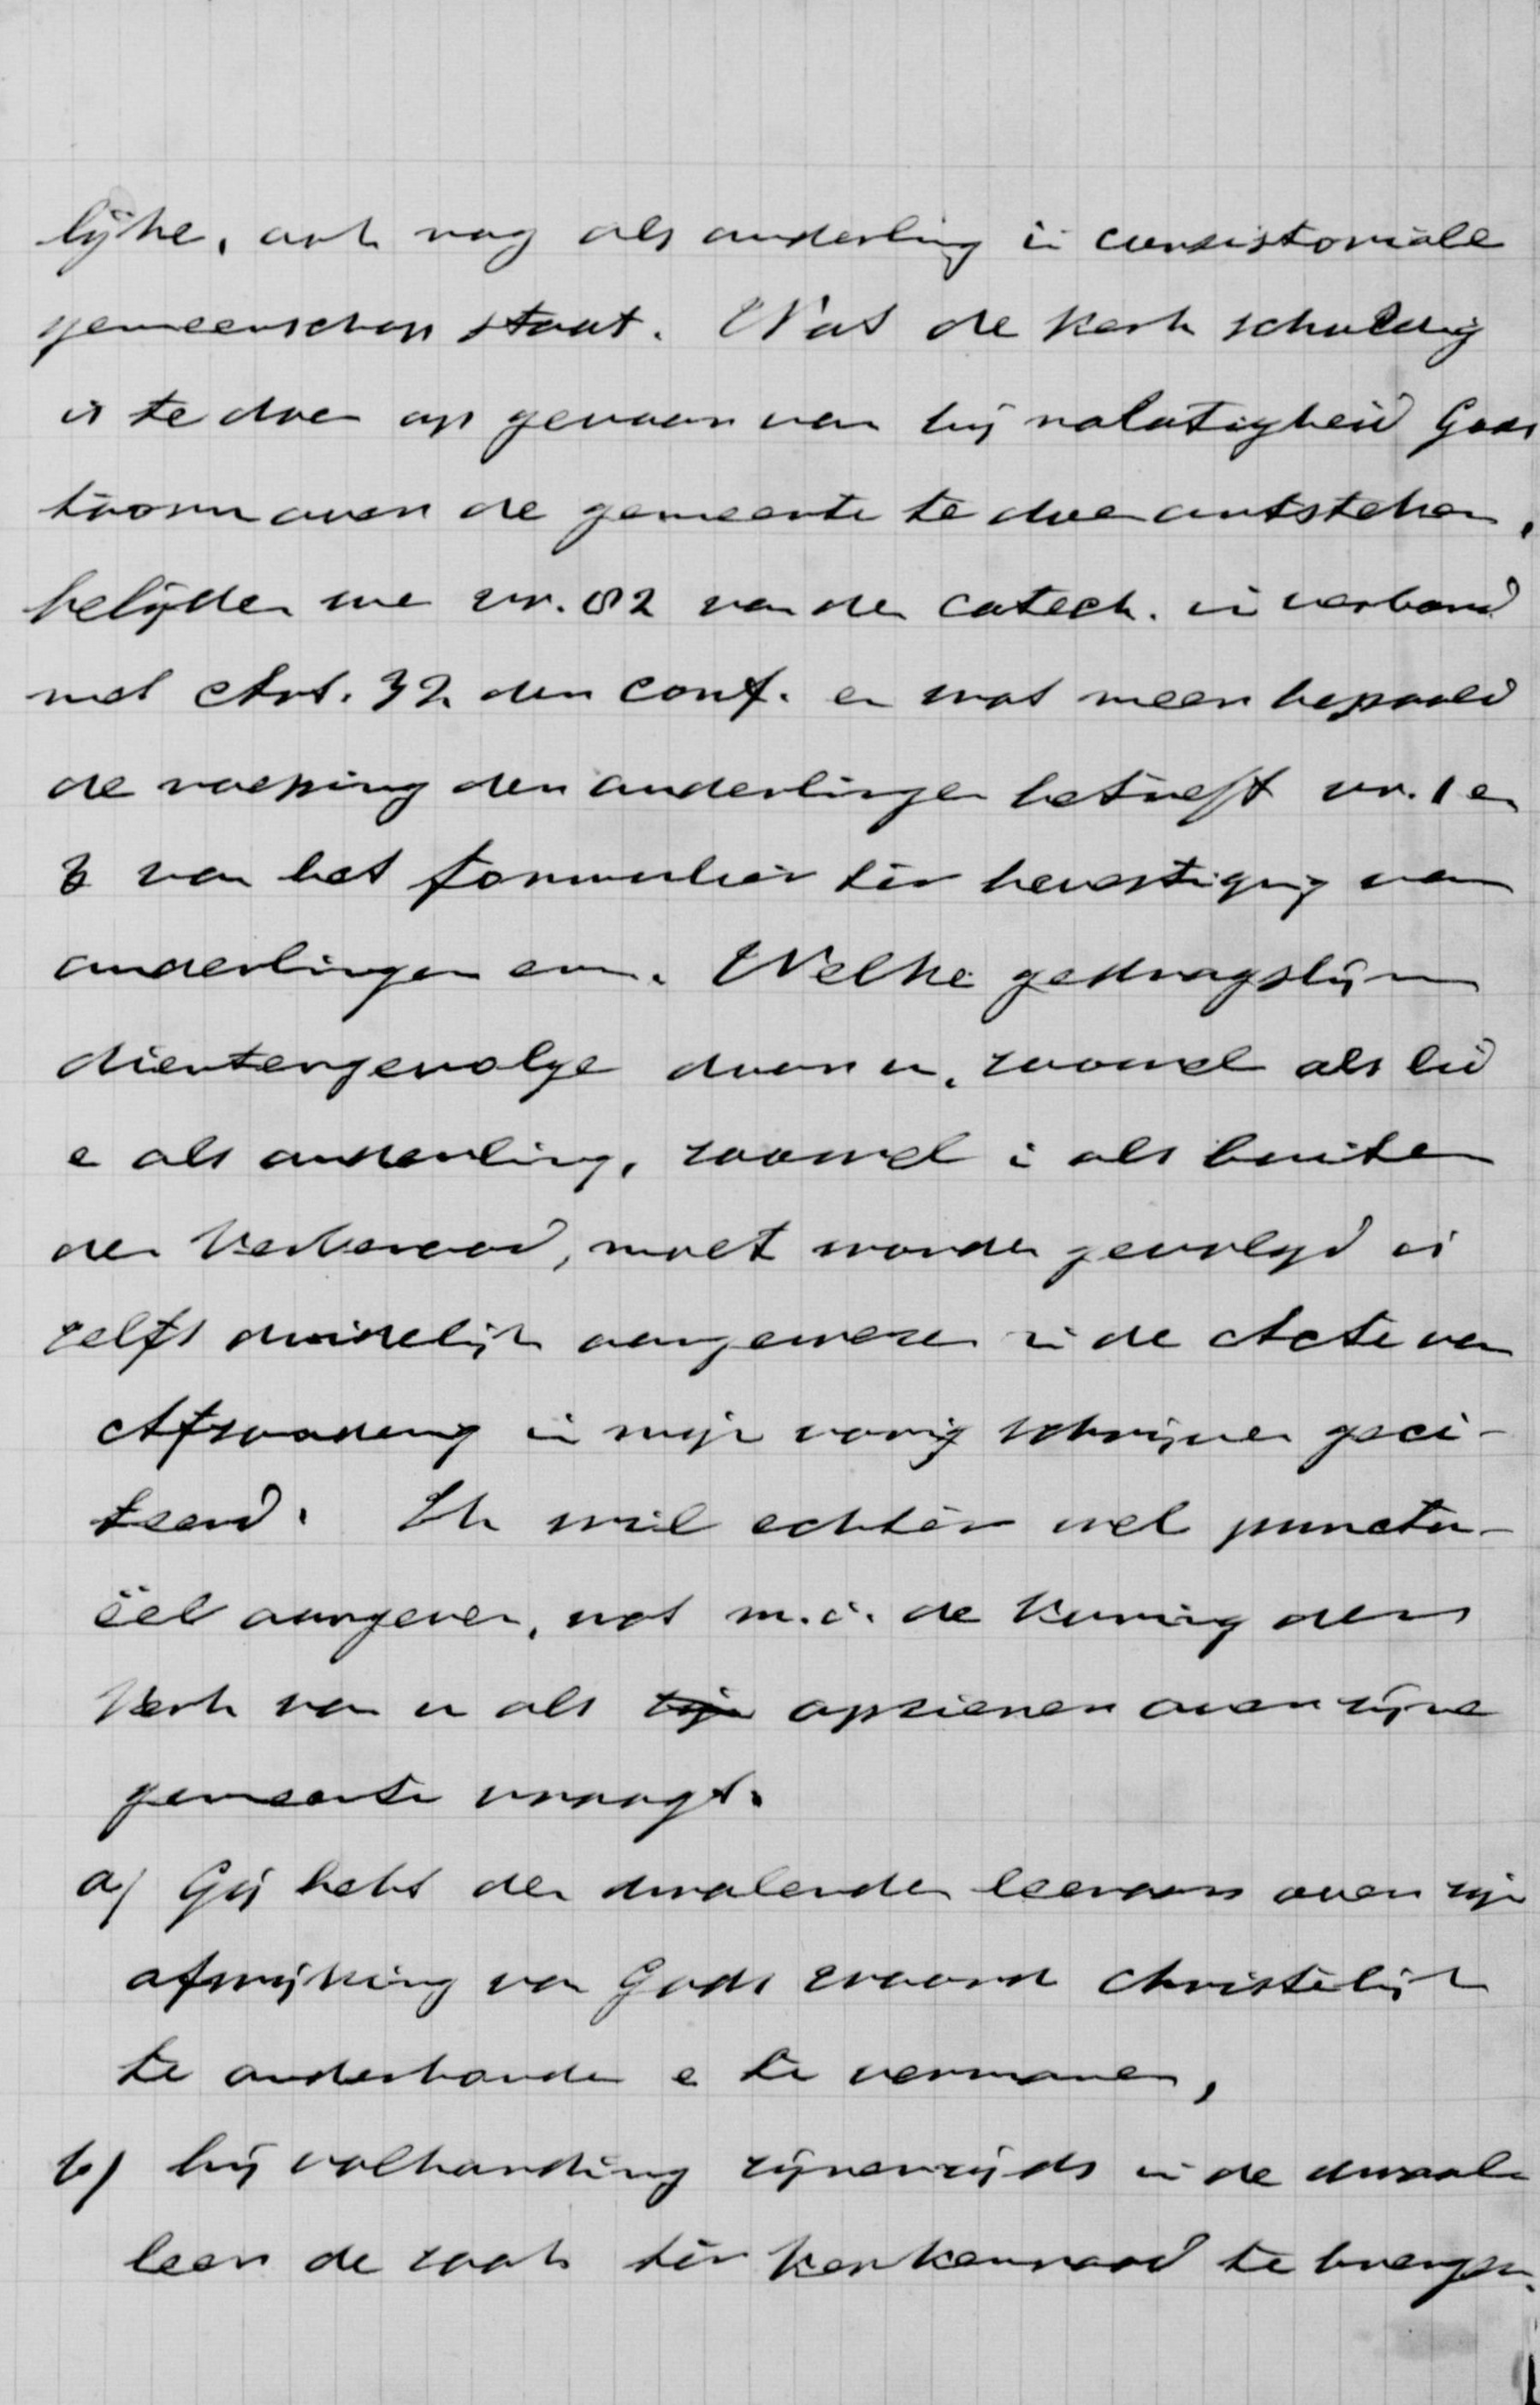 lijke, ook nog als ouderling in consistoriale
gemeenschap staat. Wat de kerk schuldig
is te doen op gevaar van bij nalatigheid Gods
toorn over de gemeente te doen ontsteken,
belijden we vr. 82 van den catech. in verband
met Art. 32 der conf. en wat meer bepaald
de roeping der ouderlingen betreft vr. 1 en
3 van het formulier ter bevestiging van
ouderlingen enz. Welke gedragslijn
dientengevolge door u, zoowel als lid
en als ouderling, zoowel in als buiten
den Kerkeraad, moet worden gevolgd is
zelfs duidelijk aangewezen in de Acte van
Afscheiding in mijn vorig schrijven geci-
teerd. Ik wil echter wel punctu-
eel aangeven, wat m.i. de Koning der
Kerk van u als opziener over zijne
gemeente vraagt.
a) Gij hebt den dwalenden leeraar over zijn
afwijking van Gods woord christelijk
te onderhouden en te vermanen,
b) bij volharding zijnerzijds in de dwaal-
leer de zaak ter kerkenraad te brengen.